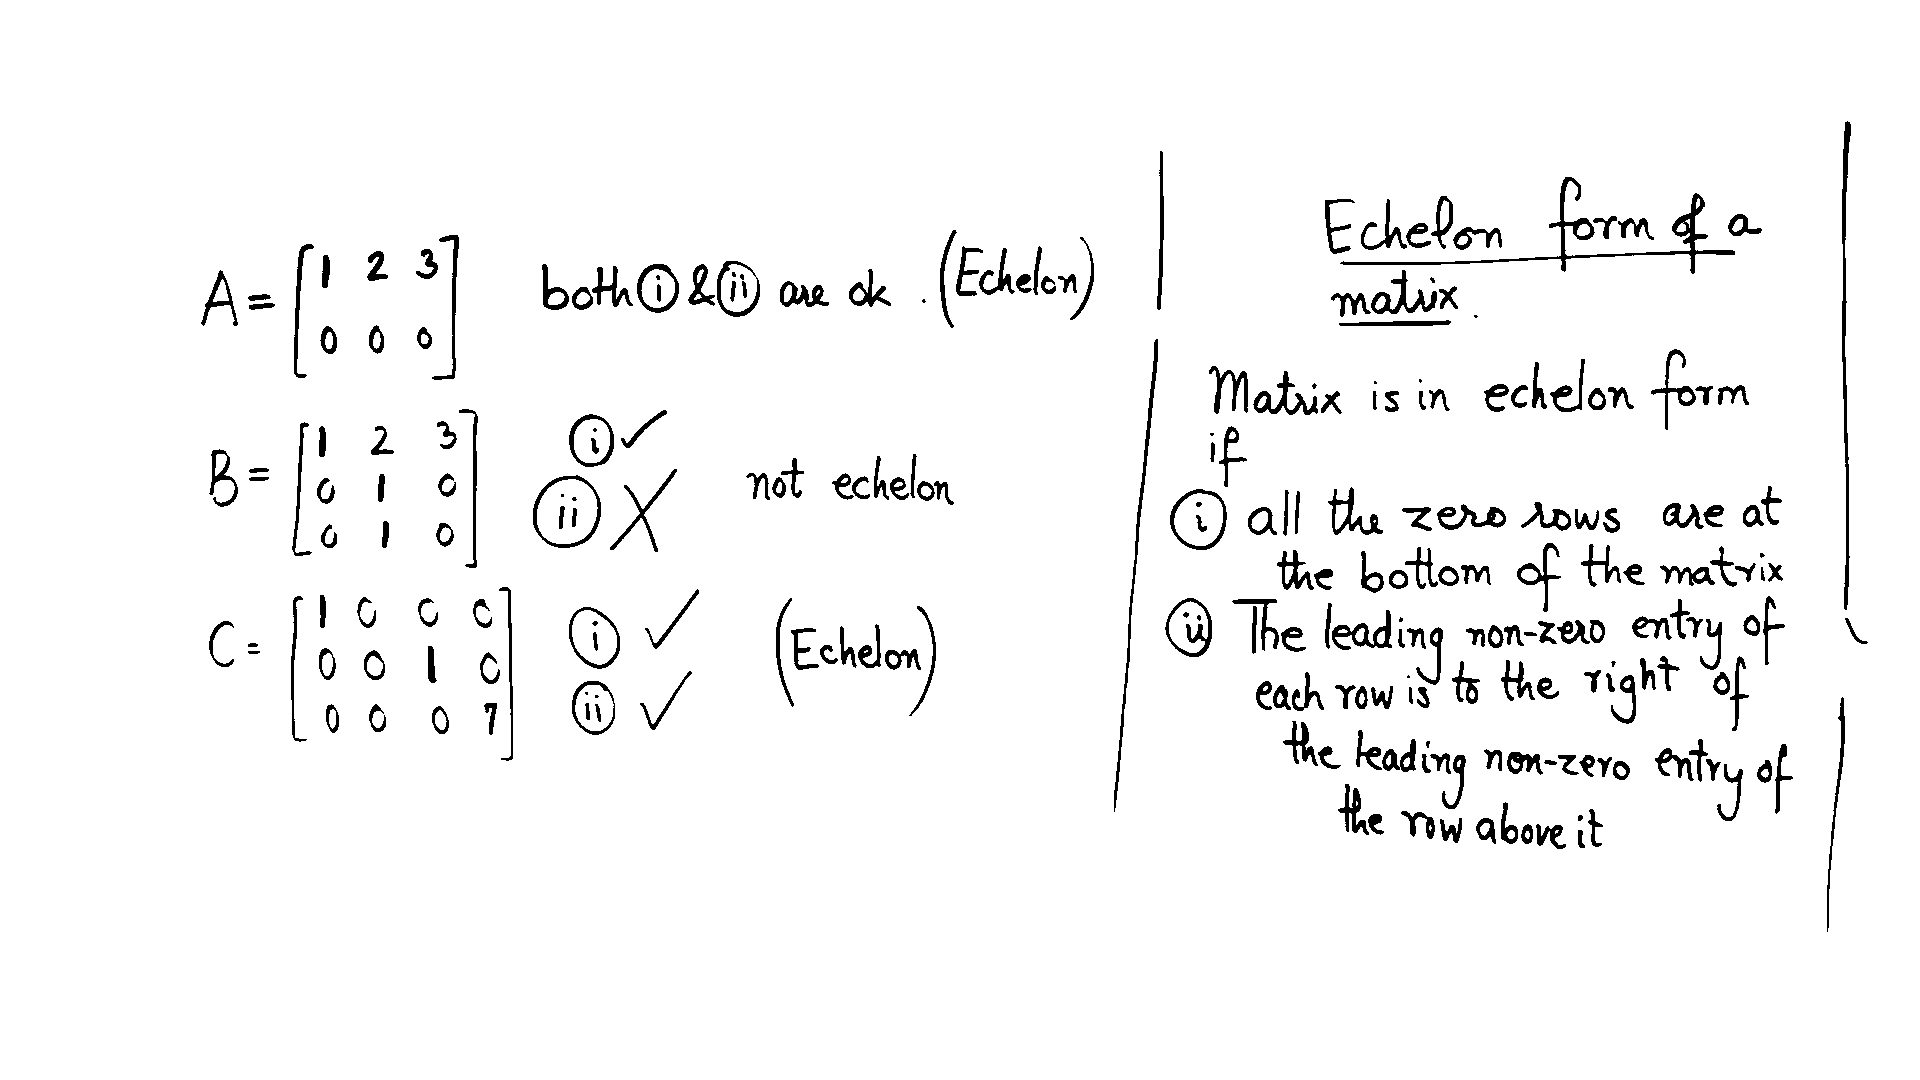 A = [1 2 3
0 0 0] both (i) & (ii) are ok . (Echelon)
B = [1 2 3
0 1 0
0 1 0] (i) ✓
(ii) X not echelon
C = [1 0 0 0
0 0 1 0
0 0 0 7] (i) ✓
(ii) ✓ (Echelon)
Echelon form of a
matrix.
Matrix is in echelon form
if
(i) all the zero rows are at
the bottom of the matrix
(ii) The leading non-zero entry of
each row is to the right of
the leading non-zero entry of
the row above it